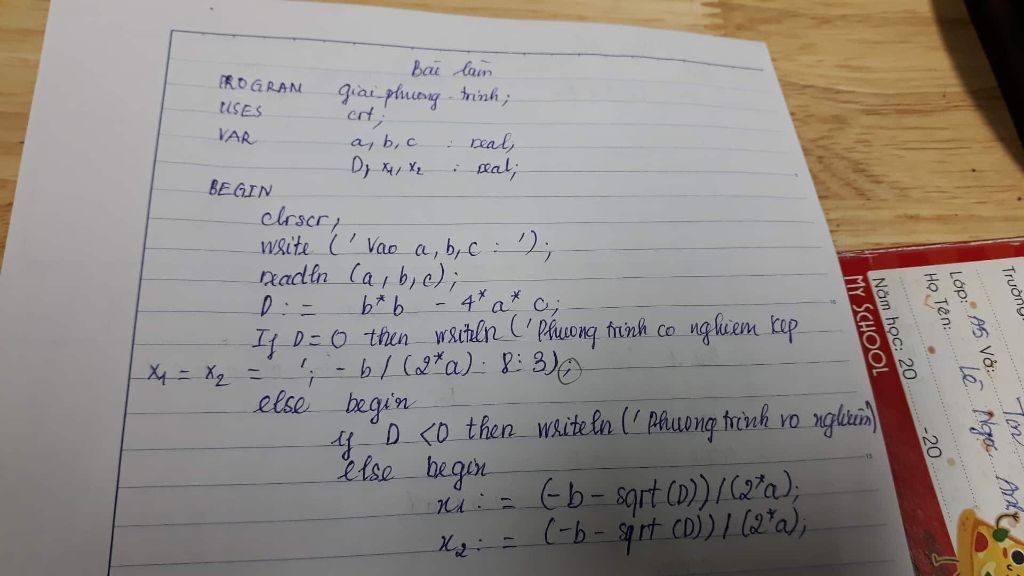 Bài làm
PROGRAM giai_phuong_trinh;
USES crt;
VAR a, b, c : real,
D, x1, x2 : real;
BEGIN
clrscr,
write (' Vao a, b, c : ');
readln (a, b, c);
D := b*b - 4*a* c;
If D=0 then writeln ('Phuong trinh co nghiem kep
x1 = x2 = '; - b / (2*a) : 8 : 3);
else begin
if D <0 then writeln (' Phuong trinh vo nghiem')
else begin
x1 := (-b - sqrt (D)) / (2*a);
x2 := (-b - sqrt (D)) / (2*a);
MY SCHOOL
Năm học: 20 -20
Họ Tên: Lê Ngọc Anh
Lớp: Vở:
Trường